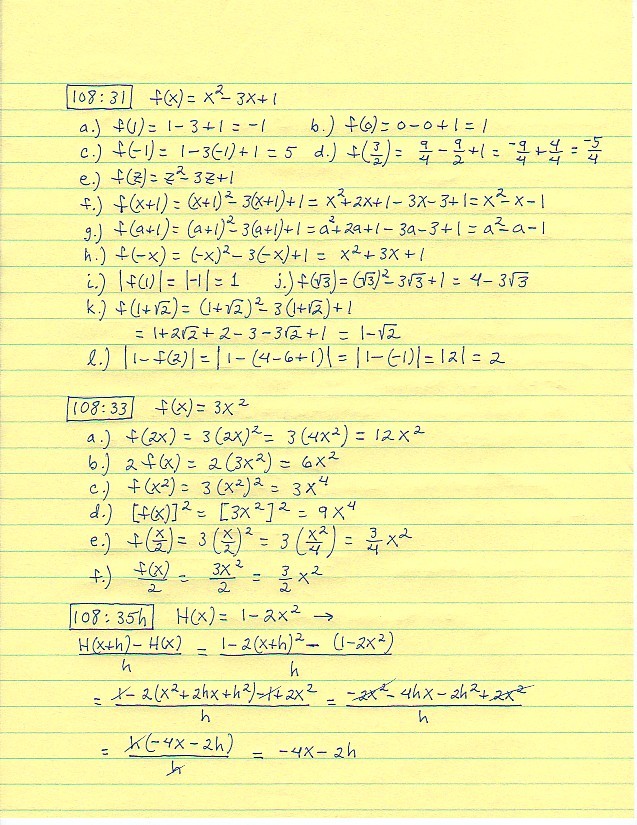 108:31 f(x) = x² - 3x + 1
a.) f(1) = 1 - 3 + 1 = -1 b.) f(0) = 0 - 0 + 1 = 1
c.) f(-1) = 1 - 3(-1) + 1 = 5 d.) f(3/2) = 9/4 - 9/2 + 1 = -9/4 + 4/4 = -5/4
e.) f(z) = z² - 3z + 1
f.) f(x+1) = (x+1)² - 3(x+1) + 1 = x² + 2x + 1 - 3x - 3 + 1 = x² - x - 1
g.) f(a+1) = (a+1)² - 3(a+1) + 1 = a² + 2a + 1 - 3a - 3 + 1 = a² - a - 1
h.) f(-x) = (-x)² - 3(-x) + 1 = x² + 3x + 1
i.) |f(1)| = |-1| = 1 j.) f(√3) = (√3)² - 3√3 + 1 = 4 - 3√3
k.) f(1+√2) = (1+√2)² - 3(1+√2) + 1
= 1 + 2√2 + 2 - 3 - 3√2 + 1 = 1 - √2
l.) |1 - f(2)| = |1 - (4 - 6 + 1)| = |1 - (-1)| = |2| = 2
108:33 f(x) = 3x²
a.) f(2x) = 3(2x)² = 3(4x²) = 12x²
b.) 2f(x) = 2(3x²) = 6x²
c.) f(x²) = 3(x²)² = 3x⁴
d.) [f(x)]² = [3x²]² = 9x⁴
e.) f(x/2) = 3(x/2)² = 3(x²/4) = 3/4 x²
f.) f(x)/2 = 3x²/2 = 3/2 x²
108:35h H(x) = 1 - 2x² →
H(x+h) - H(x) / h = 1 - 2(x+h)² - (1 - 2x²) / h
= 1 - 2(x² + 2hx + h²) - 1 + 2x² / h = -2x² - 4hx - 2h² + 2x² / h
= h(-4x - 2h) / h = -4x - 2h